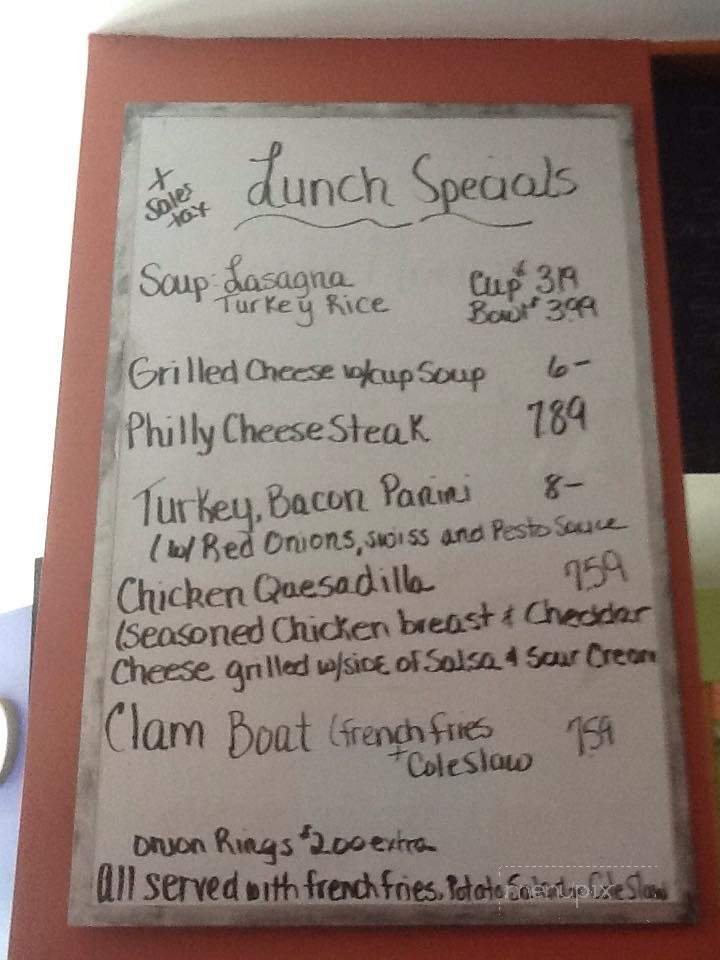 +
Sales
tax
Lunch Specials
Soup: Lasagna Cup $ 3.19
Turkey Rice Bowl $ 3.99
Grilled Cheese w/cup Soup 6-
Philly Cheese Steak 7.89
Turkey, Bacon Panini 8-
(w/ Red Onions, swiss and Pesto Sauce
Chicken Quesadilla 7.59
(Seasoned Chicken breast & Cheddar
Cheese grilled w/side of Salsa & Sour Cream
Clam Boat (french fries 7.59
+ Coleslaw
Onion Rings $2.00 extra
All served with french fries, Potato Salad, Cole Slaw
menupix